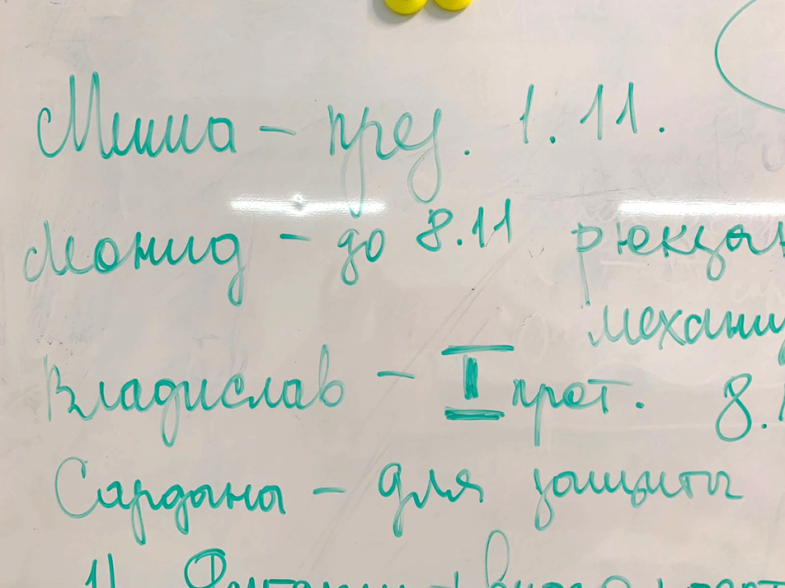 Миша – през. 1.11.
Леонид – до 8.11 рюкзак
механи
Владислав – I прот. 8.1
Сардана – для защиты
1)